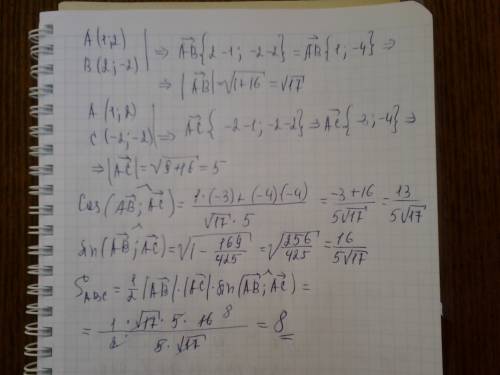 A(1;2)
B(2;-2) | ⇒ AB{2-1; -2-2} = AB{1;-4} ⇒
⇒ |AB| = √1+16 = √17
A(1;2)
C(-2;-2) | ⇒ AC{-2-1; -2-2} ⇒ AC{-3;-4} ⇒
⇒ |AC| = √9+16 = 5
Cos(AB;AC) = 1·(-3)+(-4)(-4) / √17·5 = -3+16 / 5√17 = 13 / 5√17
Sin(AB;AC) = √1 - 169/425 = √256/425 = 16 / 5√17
S ABC = 1/2 |AB|·|AC|·Sin(AB;AC) =
= 1·√17·5·16 8 / 2 5·√17 = 8